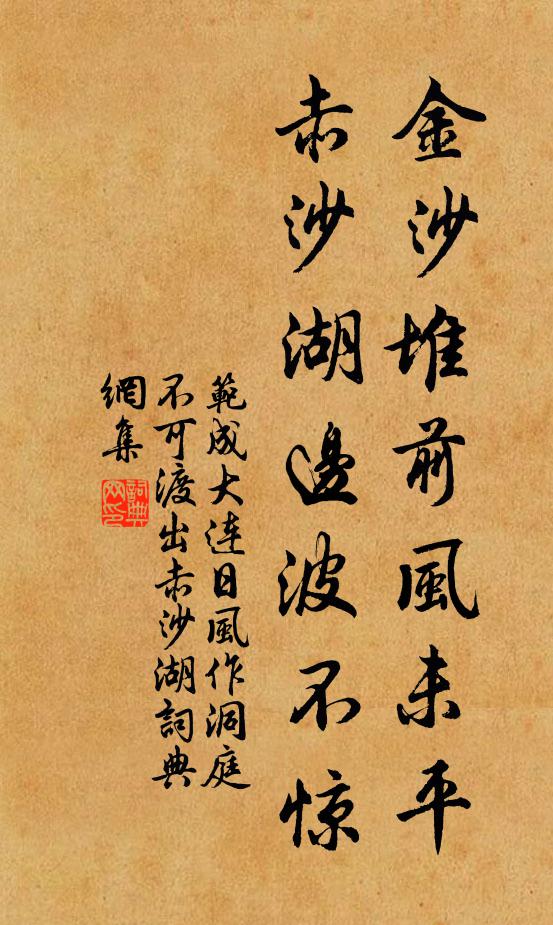 金沙堆前風未平
赤沙湖邊波不惊
範成大連日風作洞庭
不可渡出赤沙湖詞典
網集
詞典
网印